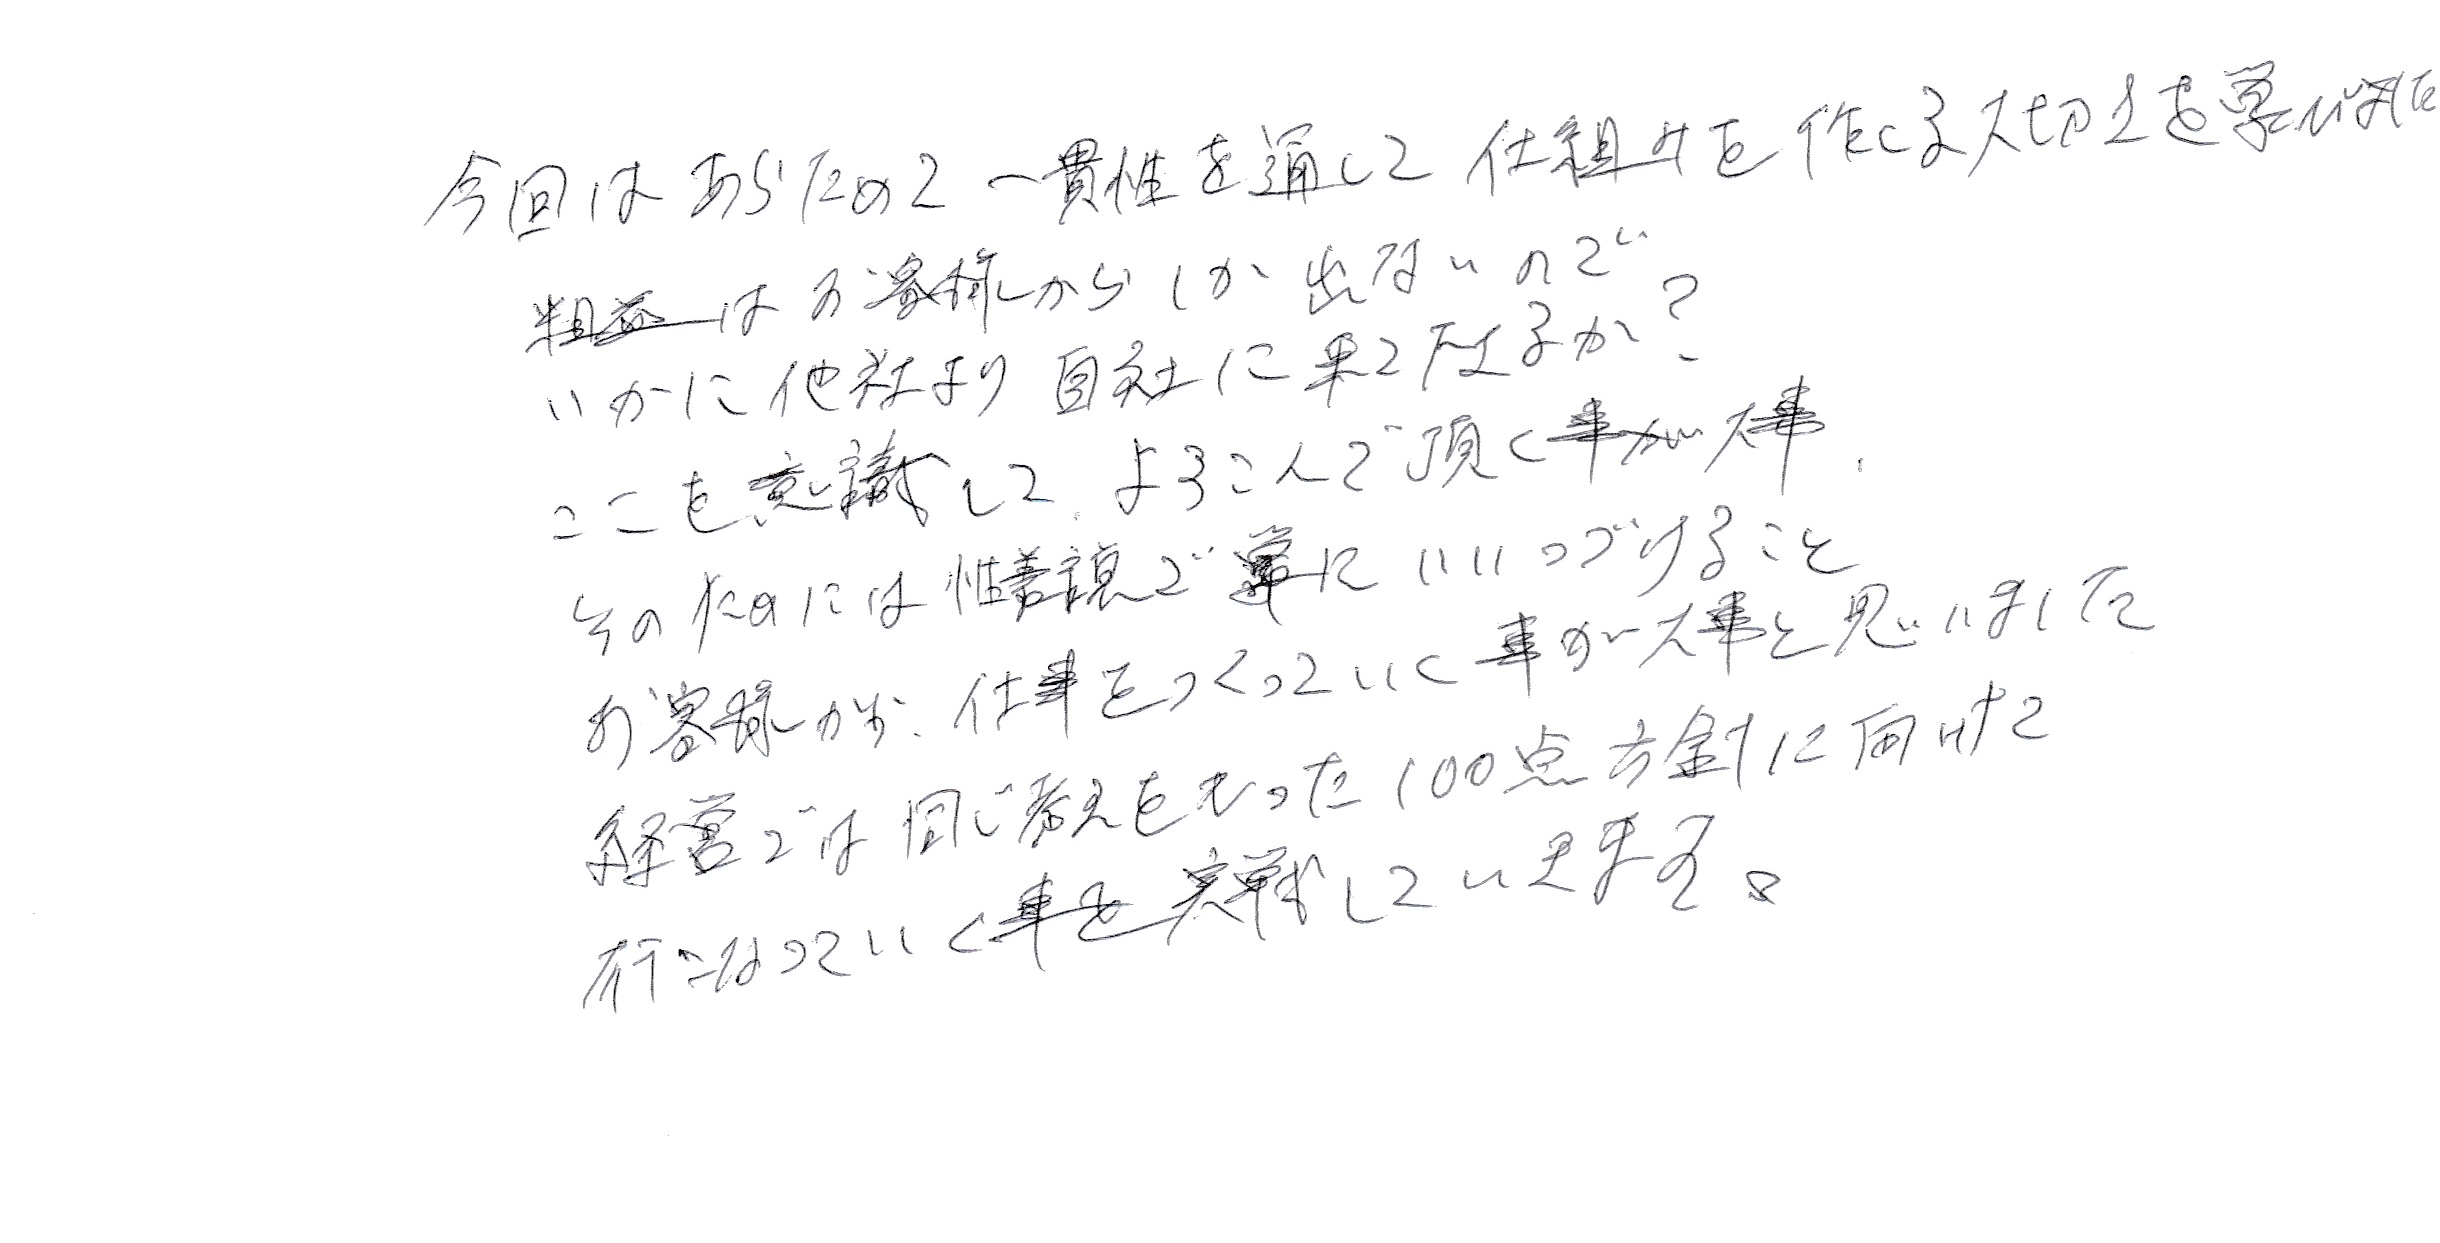 今回はあらためて一貫性を通して仕組みを作くる大切さを学びました
粗益はお客様からしか出ないので
いかに他社より自社に来て下さるか?
ここを意識して、よろこんで頂く事が大事、
そのためには性善説で にいいつづけること
お客様が、仕事をつくっていく事が大事と思いました
経営では同じ考えをもった100点方針に向けて
行こなっていく事を実戦していきます。